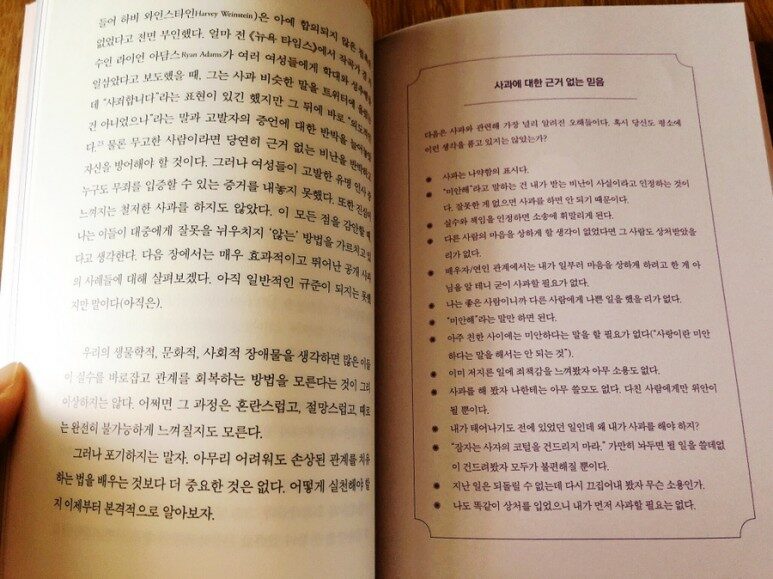 들어 하비 와인스타인(Harvey Weinstein)은 아예 합의되지 않은
없었다고 전면 부인했다. 얼마 전 《뉴욕 타임스》에서 작곡가 겸
수인 라이언 아담스Ryan Adams가 여러 여성들에게 학대와
일삼았다고 보도했을 때, 그는 사과 비슷한 말을 트위터에
데 “사죄합니다”라는 표현이 있긴 했지만 그 뒤에 바로
건 아니었으나”라는 말과 고발자의 증언에 대한 반박을
다.²³ 물론 무고한 사람이라면 당연히 근거 없는 비난을
자신을 방어해야 할 것이다. 그러나 여성들이 고발한 유명 인사
누구도 무죄를 입증할 수 있는 증거를 내놓지 못했다. 또한
느껴지는 철저한 사과를 하지도 않았다. 이 모든 점을 감안할 때
나는 이들이 대중에게 잘못을 뉘우치지 ‘않는’ 방법을 가르치고
다고 생각한다. 다음 장에서는 매우 효과적이고 뛰어난 공개 사과
의 사례들에 대해 살펴보겠다. 아직 일반적인 규준이 되지는 못했
지만 말이다(아직은).
우리의 생물학적, 문화적, 사회적 장애물을 생각하면 많은 이들
이 실수를 바로잡고 관계를 회복하는 방법을 모른다는 것이 그리
이상하지는 않다. 어쩌면 그 과정은 혼란스럽고, 절망스럽고, 때로
는 완전히 불가능하게 느껴질지도 모른다.
그러나 포기하지는 말자. 아무리 어려워도 손상된 관계를 치유
하는 법을 배우는 것보다 더 중요한 것은 없다. 어떻게 실천해야 할
지 이제부터 본격적으로 알아보자.
사과에 대한 근거 없는 믿음
다음은 사과와 관련해 가장 널리 알려진 오해들이다. 혹시 당신도 평소에
이런 생각을 품고 있지는 않았는가?
사과는 나약함의 표시다.
“미안해”라고 말하는 건 내가 받는 비난이 사실이라고 인정하는 것이
다. 잘못한 게 없으면 사과를 하면 안 되기 때문이다.
실수와 책임을 인정하면 소송에 휘말리게 된다.
다른 사람의 마음을 상하게 할 생각이 없었다면 그 사람도 상처받았을
리가 없다.
배우자/연인 관계에서는 내가 일부러 마음을 상하게 하려고 한 게 아
님을 알 테니 굳이 사과할 필요가 없다.
나는 좋은 사람이니까 다른 사람에게 나쁜 일을 했을 리가 없다.
“미안해”라는 말만 하면 된다.
아주 친한 사이에는 미안하다는 말을 할 필요가 없다(“사랑이란 미안
하다는 말을 해서는 안 되는 것”).
이미 저지른 일에 죄책감을 느껴봤자 아무 소용도 없다.
사과를 해 봤자 나한테는 아무 쓸모도 없다. 다친 사람에게만 위안이
될 뿐이다.
내가 태어나기도 전에 있었던 일인데 왜 내가 사과를 해야 하지?
“잠자는 사자의 코털을 건드리지 마라.” 가만히 놔두면 될 일을 쓸데없
이 건드려봤자 모두가 불편해질 뿐이다.
지난 일은 되돌릴 수 없는데 다시 끄집어내 봤자 무슨 소용인가.
나도 똑같이 상처를 입었으니 내가 먼저 사과할 필요는 없다.